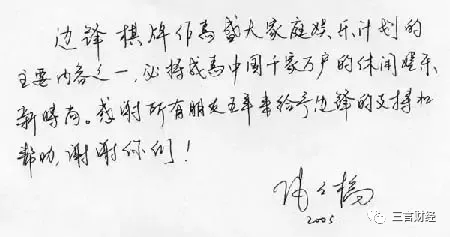 边锋棋牌作为盛大家庭娱乐计划的
主要内容之一,必将成为中国千家万户的休闲娱乐
新时尚。感谢所有朋友五年来给予边锋的支持和
帮助,谢谢你们!
陈天桥
2005
三言财经